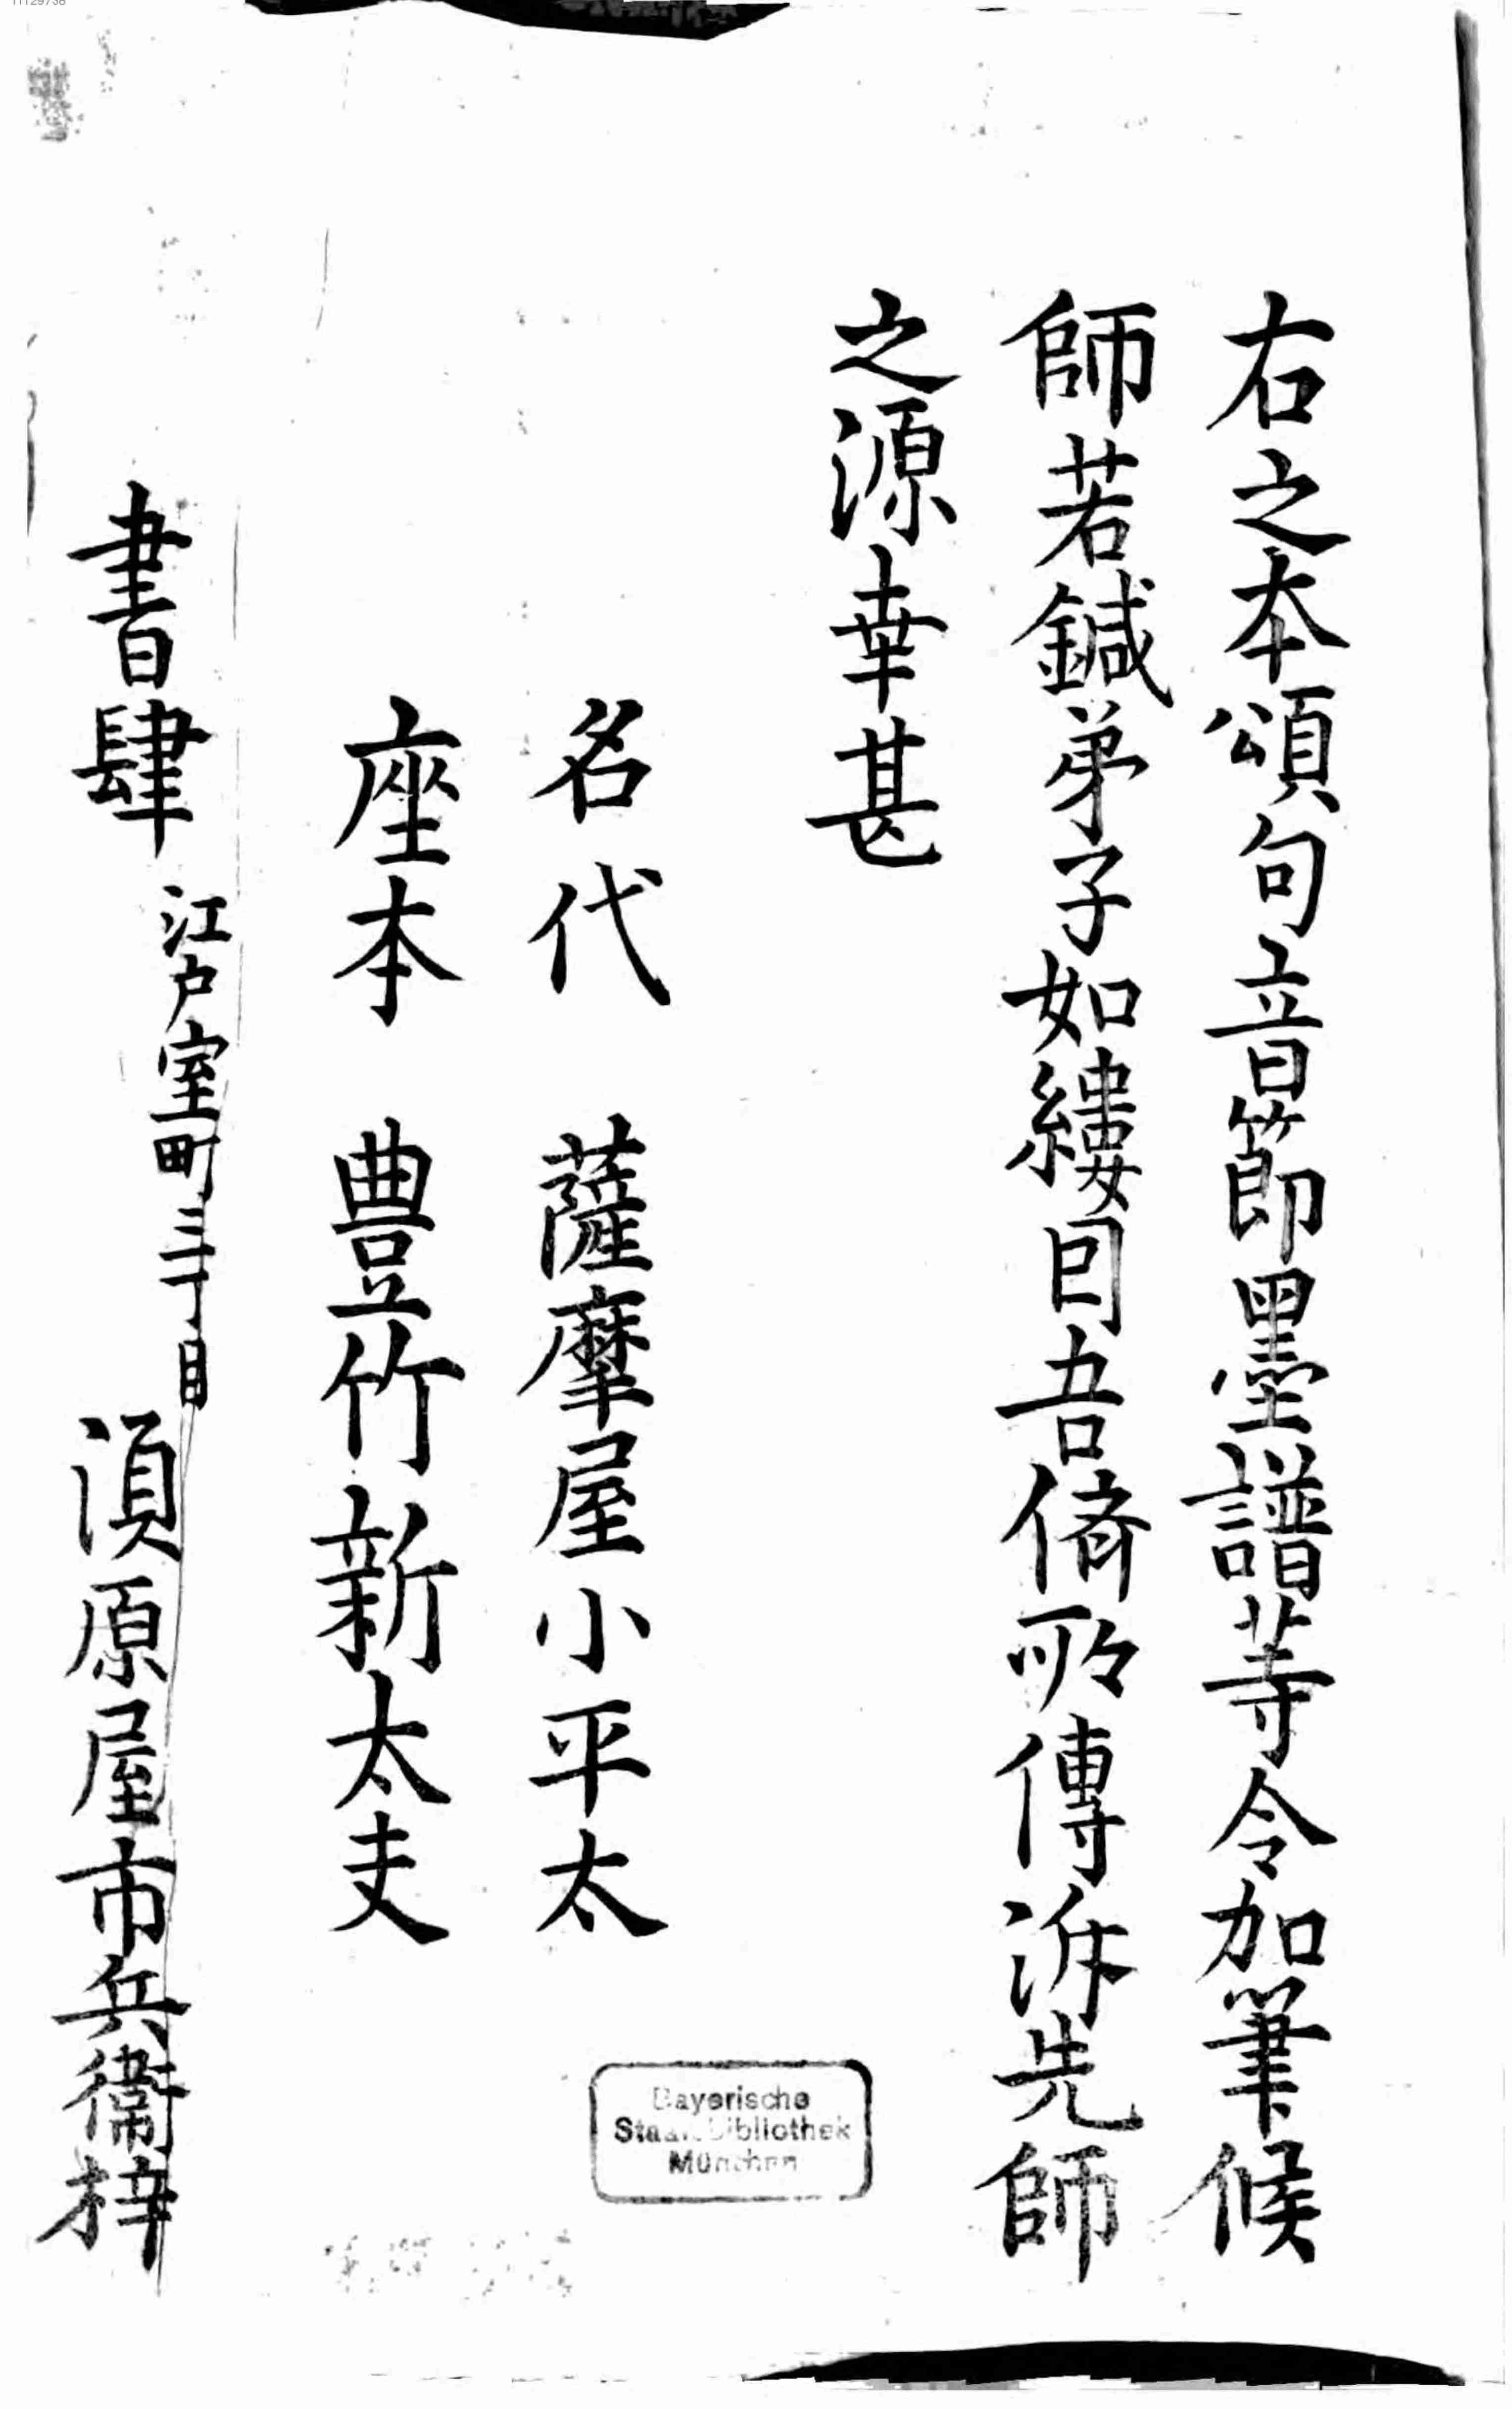 右之本頌句音節墨譜等令加筆候
師若鍼弟子如縷因吾儕所傳泝先師
之源幸甚
名代 薩摩屋小平太
座本 豊竹新太夫
書肆 江戸室町三丁目 須原屋市兵衞梓
Bayerische
Staatsbibliothek
München
11129738